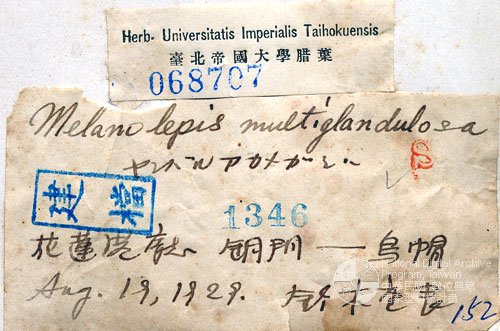 Herb- Universitatis Imperialis Taihokuensis
臺北帝國大學腊葉
068707
Melanolepis multiglandulosa
ヤンバルアカメガシハ
建檔
1346
花蓮港廳 銅門 — 烏帽
Aug. 19, 1929. 鈴木
152
National Digital Archive
Program, Taiwan